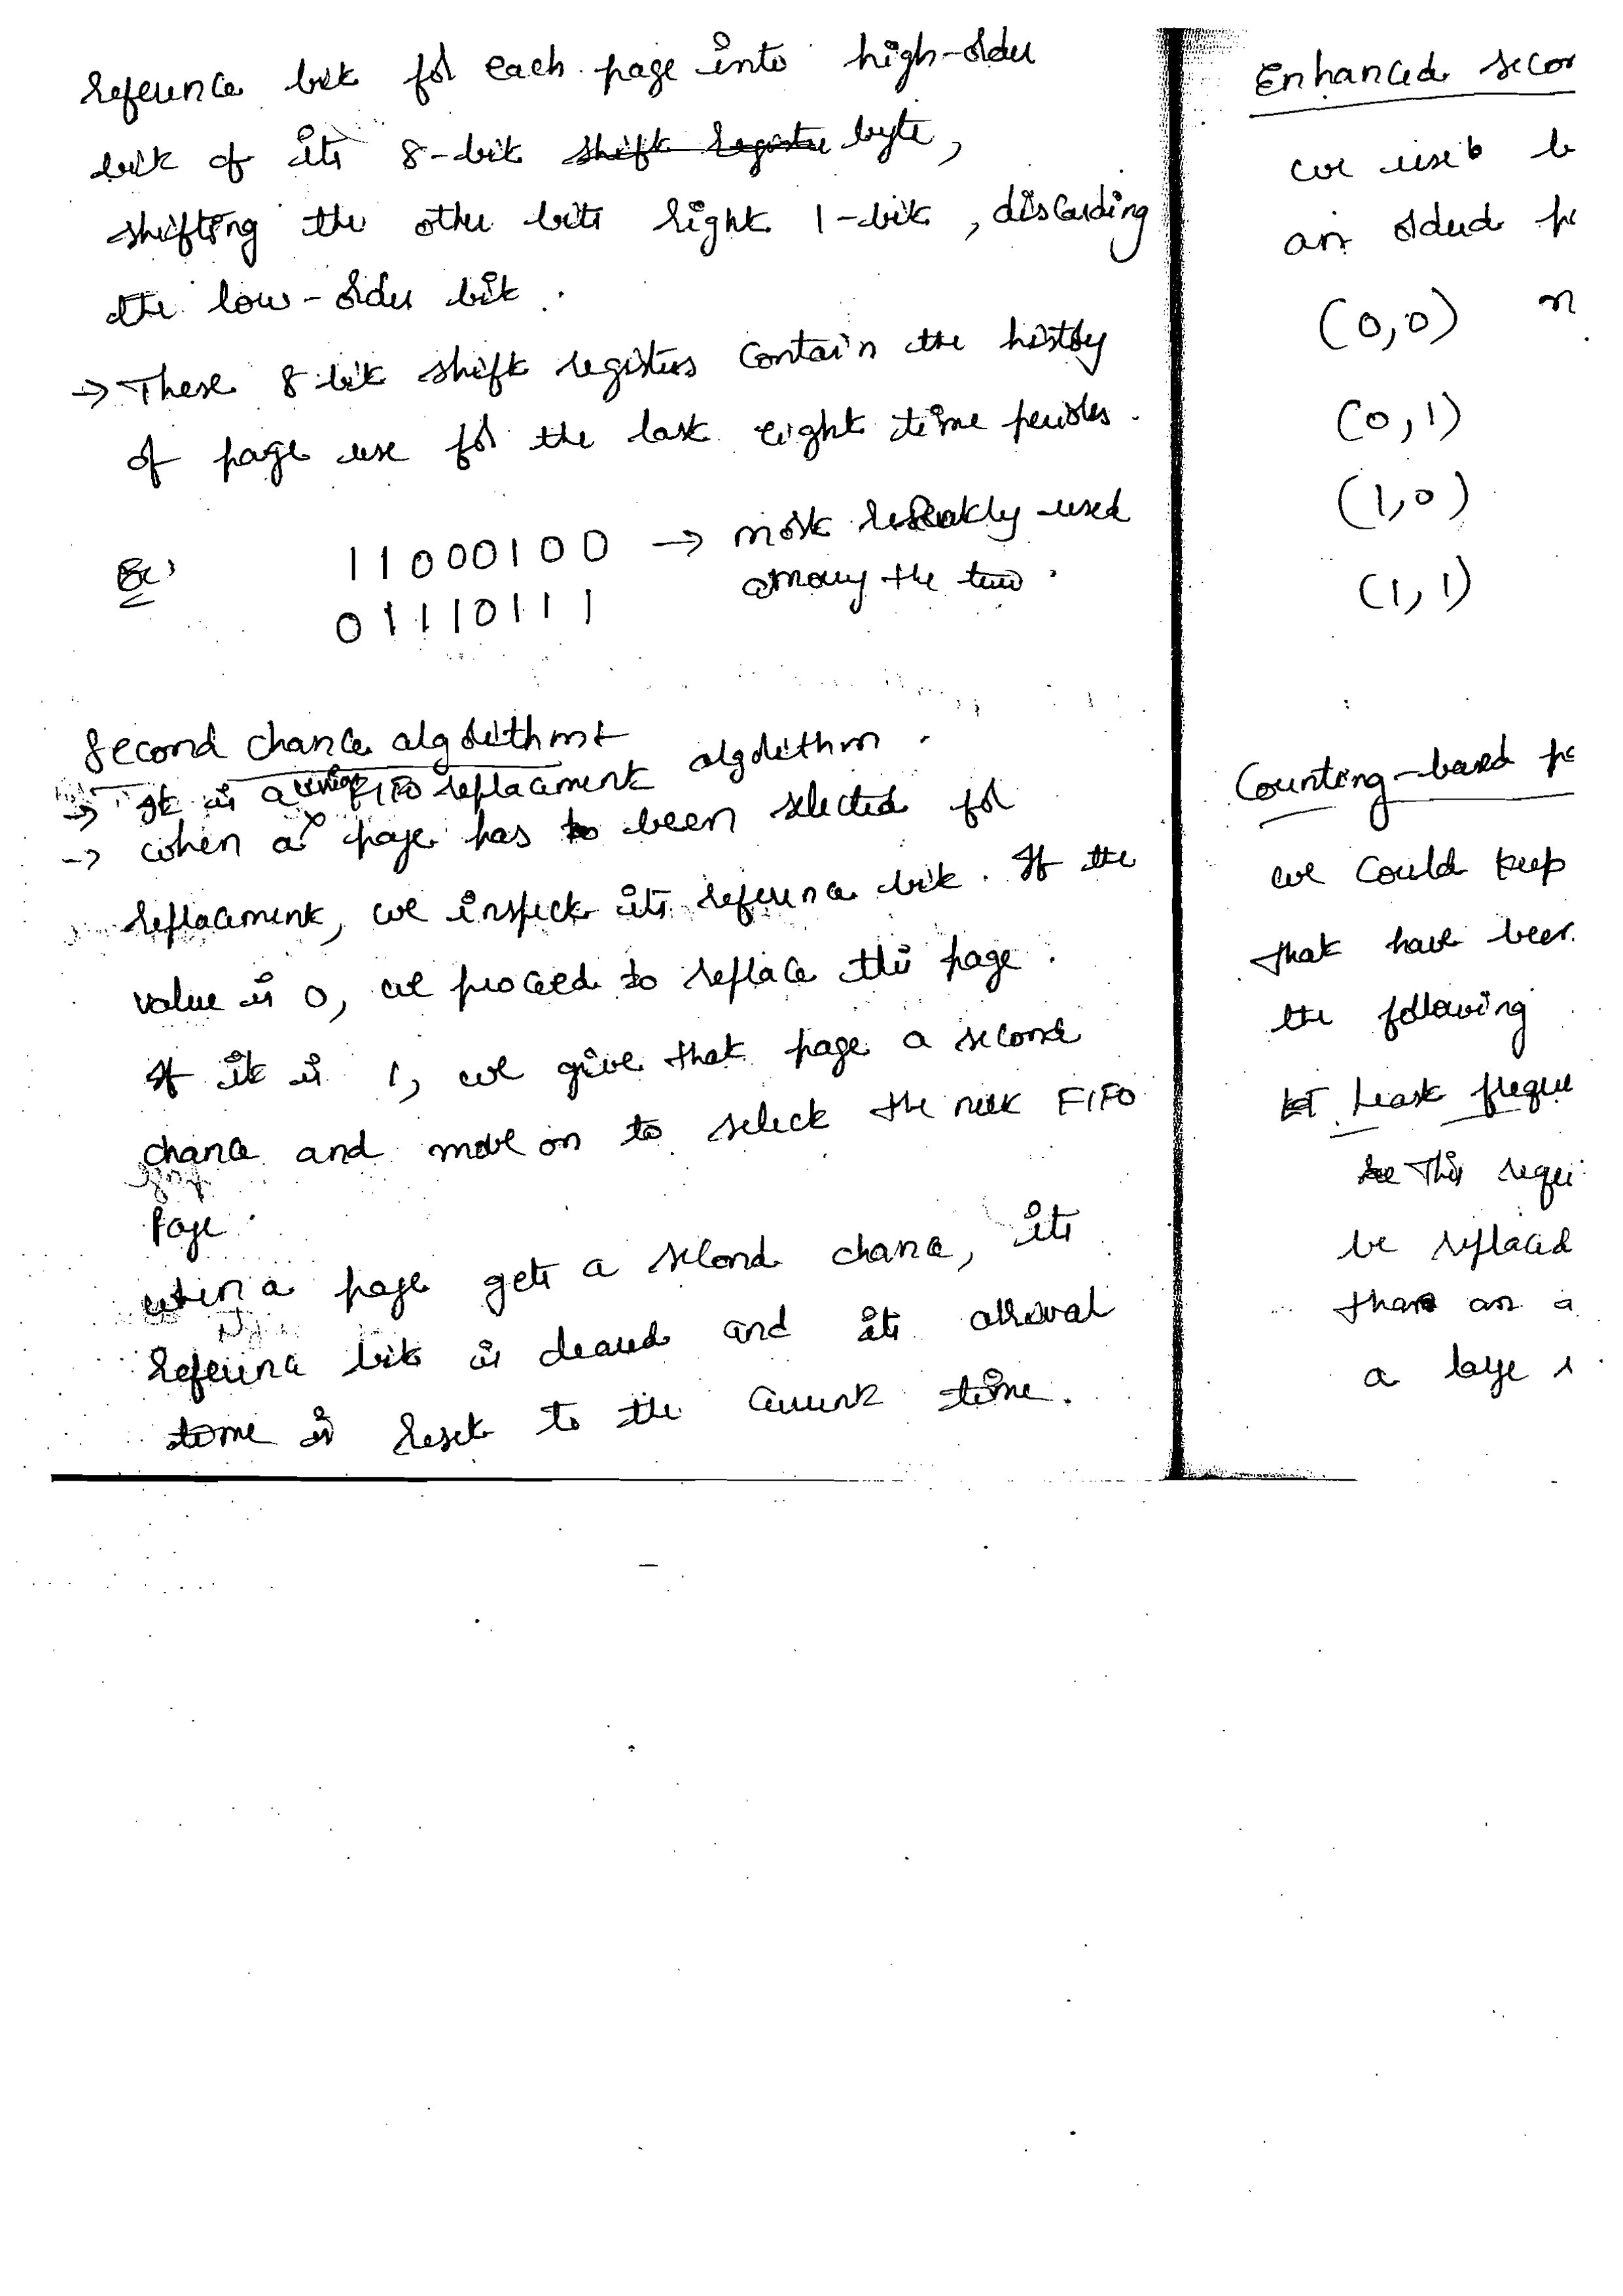 reference bit for each page into high-order
bit of its 8-bit shift register byte,
shifting the other bits right 1-bit, discarding
the low-order bit.
→ These 8 bit shift registers contain the history
of page use for the last eight time periods.
Ex:
11000100 → most recently used
among the two.
01110111
Second chance algorithm:
→ It is a FIFO replacement algorithm.
→ when a page has been selected for
replacement, we inspect its reference bit. If the
value is 0, we proceed to replace this page.
If it is 1, we give that page a second
chance and move on to select the next FIFO
Page.
when a page gets a second chance, its
reference bit is cleared and its arrival
time is reset to the current time.
Enhanced secon
we use b
an ordered p
(0,0) n
(0,1)
(1,0)
(1,1)
Counting-based p
we could keep
that have been
the following
Least freque
This requi
be replaced
than an a
a large